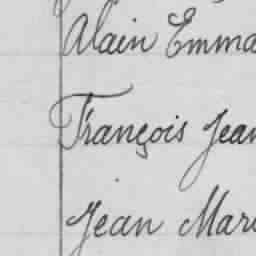 Alain Emma
François Jean
Jean Mari